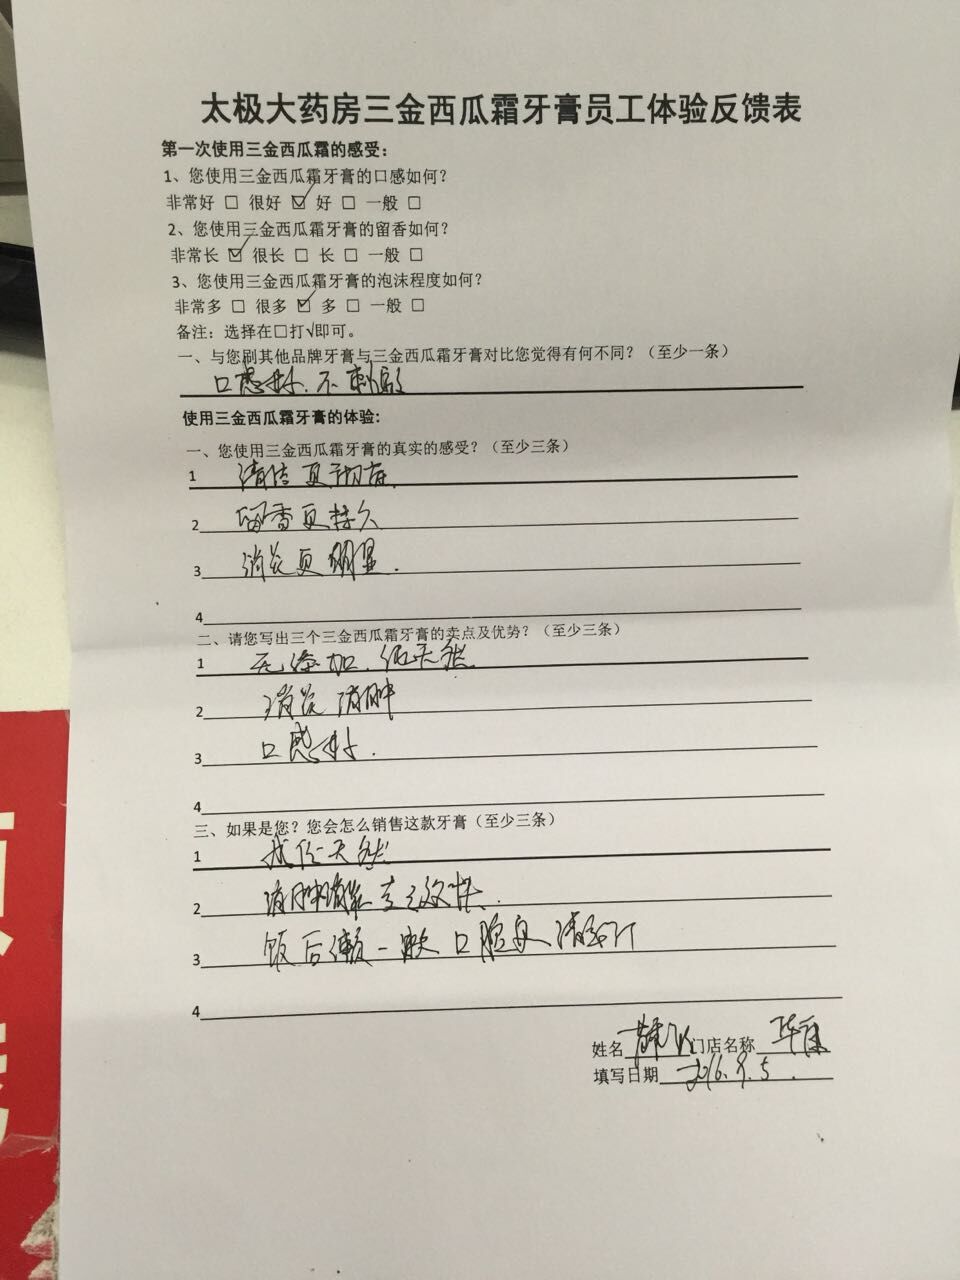 太极大药房三金西瓜霜牙膏员工体验反馈表
第一次使用三金西瓜霜的感受：
1、您使用三金西瓜霜牙膏的口感如何？
非常好 □ 很好 ☑ 好 □ 一般 □
2、您使用三金西瓜霜牙膏的留香如何？
非常长 ☑ 很长 □ 长 □ 一般 □
3、您使用三金西瓜霜牙膏的泡沫程度如何？
非常多 □ 很多 ☑ 多 □ 一般 □
备注：选择在□打√即可。
一、与您刷其他品牌牙膏与三金西瓜霜牙膏对比您觉得有何不同？（至少一条）
口感好、不刺激
使用三金西瓜霜牙膏的体验:
一、您使用三金西瓜霜牙膏的真实的感受？（至少三条）
1 清洁更彻底.
2 留香更持久
3 消炎更明显.
4
二、请您写出三个三金西瓜霜牙膏的卖点及优势？（至少三条）
1 无添加、纯天然.
2 消炎 消肿
3 口感好.
4
三、如果是您？您会怎么销售这款牙膏（至少三条）
1 成份天然
2 消肿消炎 效快.
3 饭后 一 口腔更清新
4
姓名 门店名称
填写日期 2016.9.5.